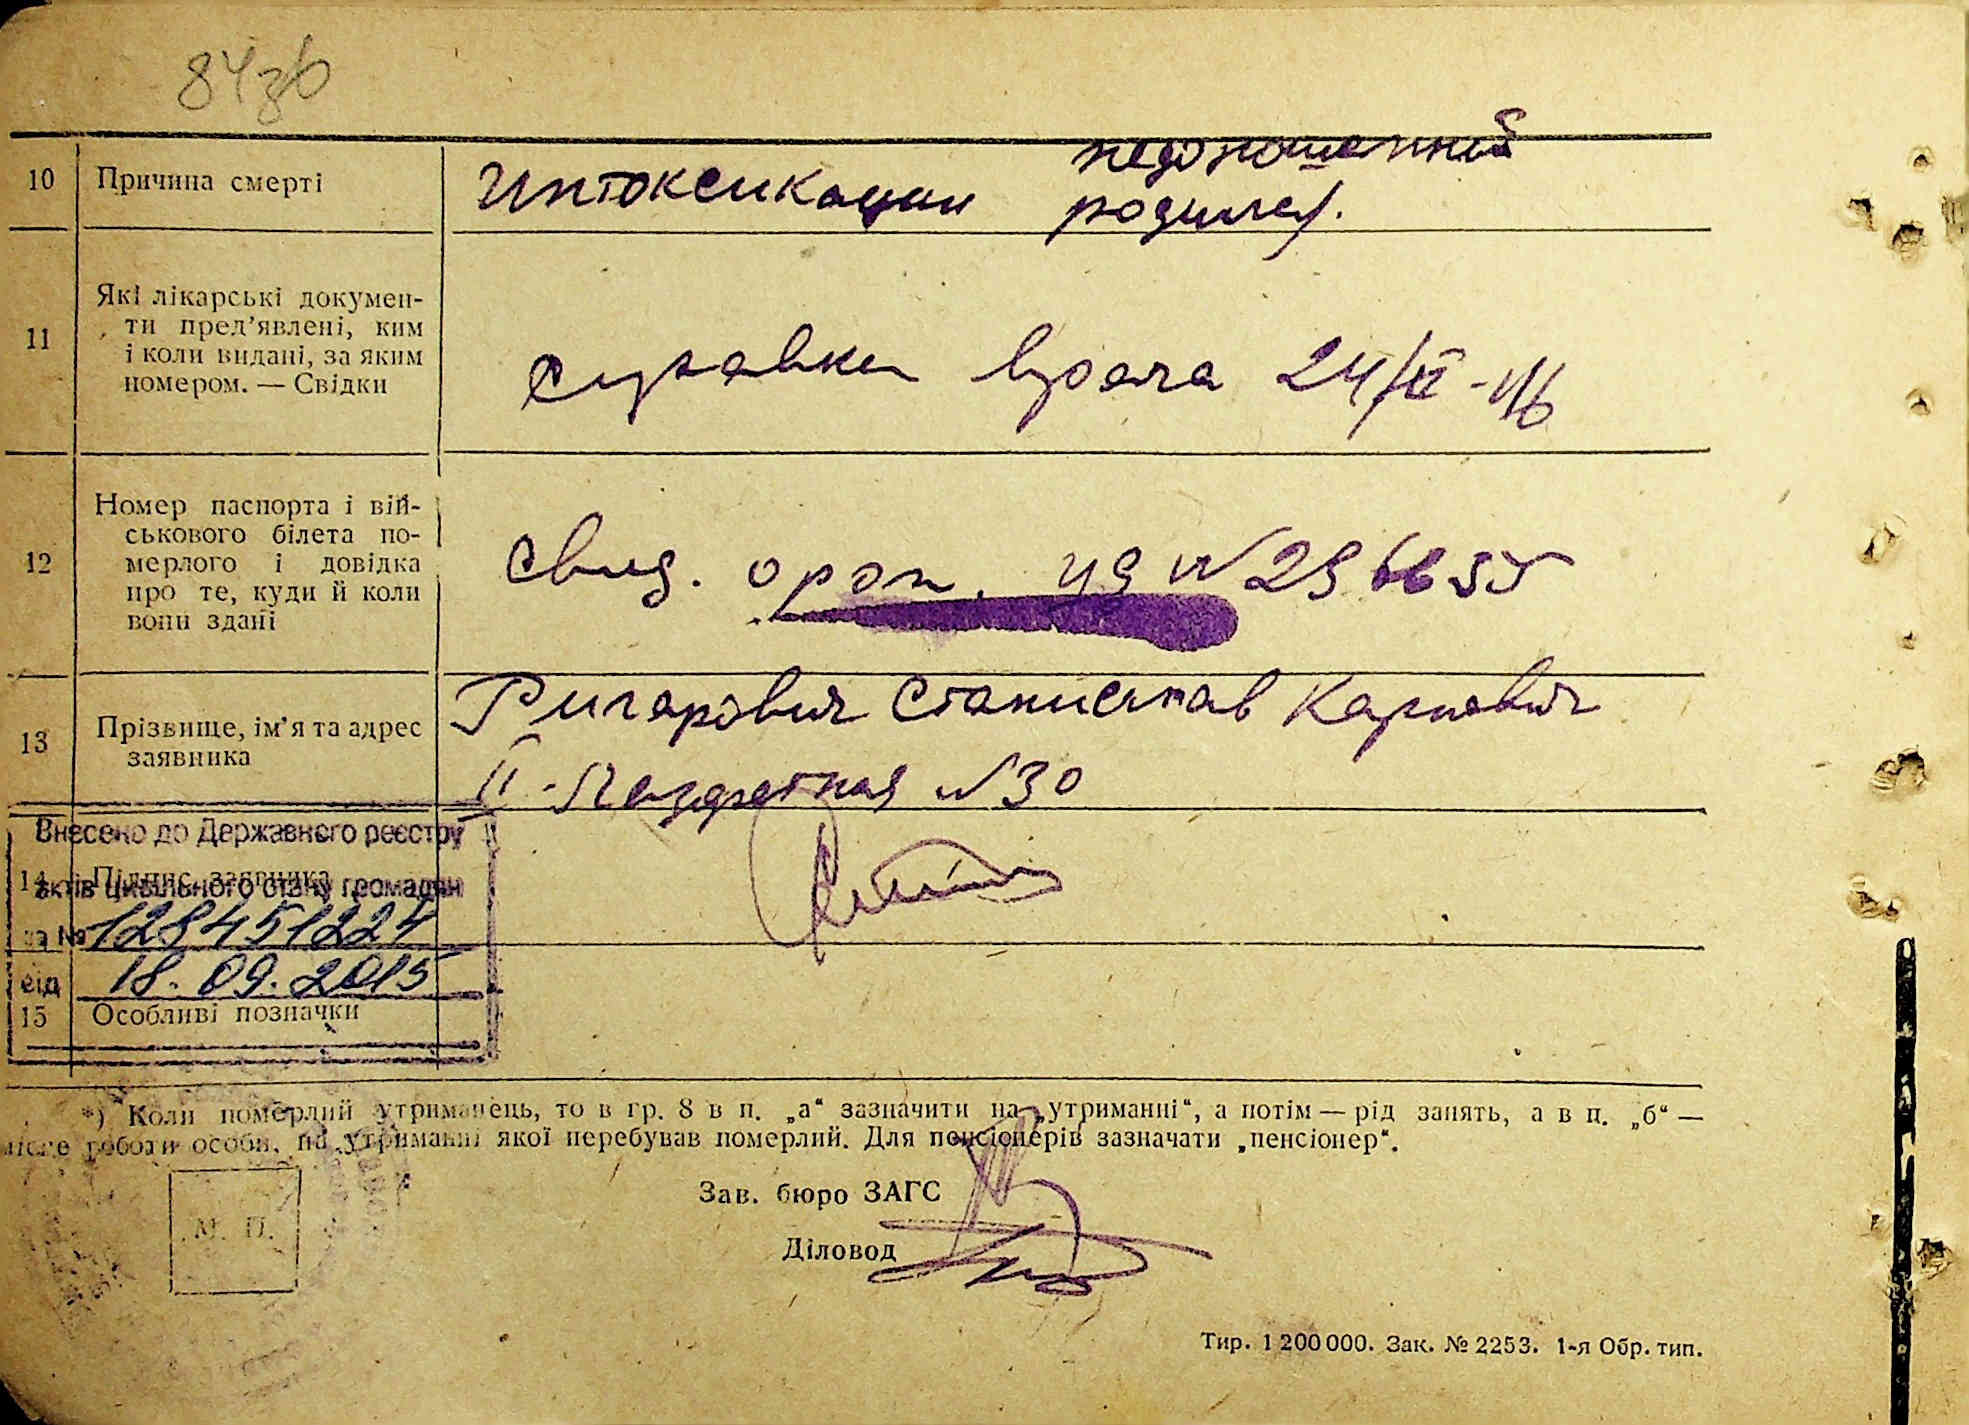 84зб
10 Причина смерті
Интоксикации недоношенный
родился.
11 Які лікарські докумен-
ти пред’явлені, ким
і коли видані, за яким
номером. — Свідки
справка врача 24/VI-46
12 Номер паспорта і вій-
ськового білета по-
мерлого і довідка
про те, куди й коли
вони здані
свид. о рож. УЯ №296655
13 Прізвище, ім’я та адрес
заявника
Станислав Карпович
II- №30
Внесено до Державного реєстру
14 Підпис заявника
актів цивільного стану громадян
за № 128451224
від 18.09.2015
15 Особливі позначки
*) Коли померлий утриманець, то в гр. 8 в п. „а“ зазначити на „утриманні“, а потім — рід занять, а в п. „б“ —
місце роботи особи, на утриманні якої перебував померлий. Для пенсіонерів зазначати „пенсіонер“.
М. П.
Зав. бюро ЗАГС
Діловод
Тир. 1 200 000. Зак. № 2253. 1-я Обр. тип.